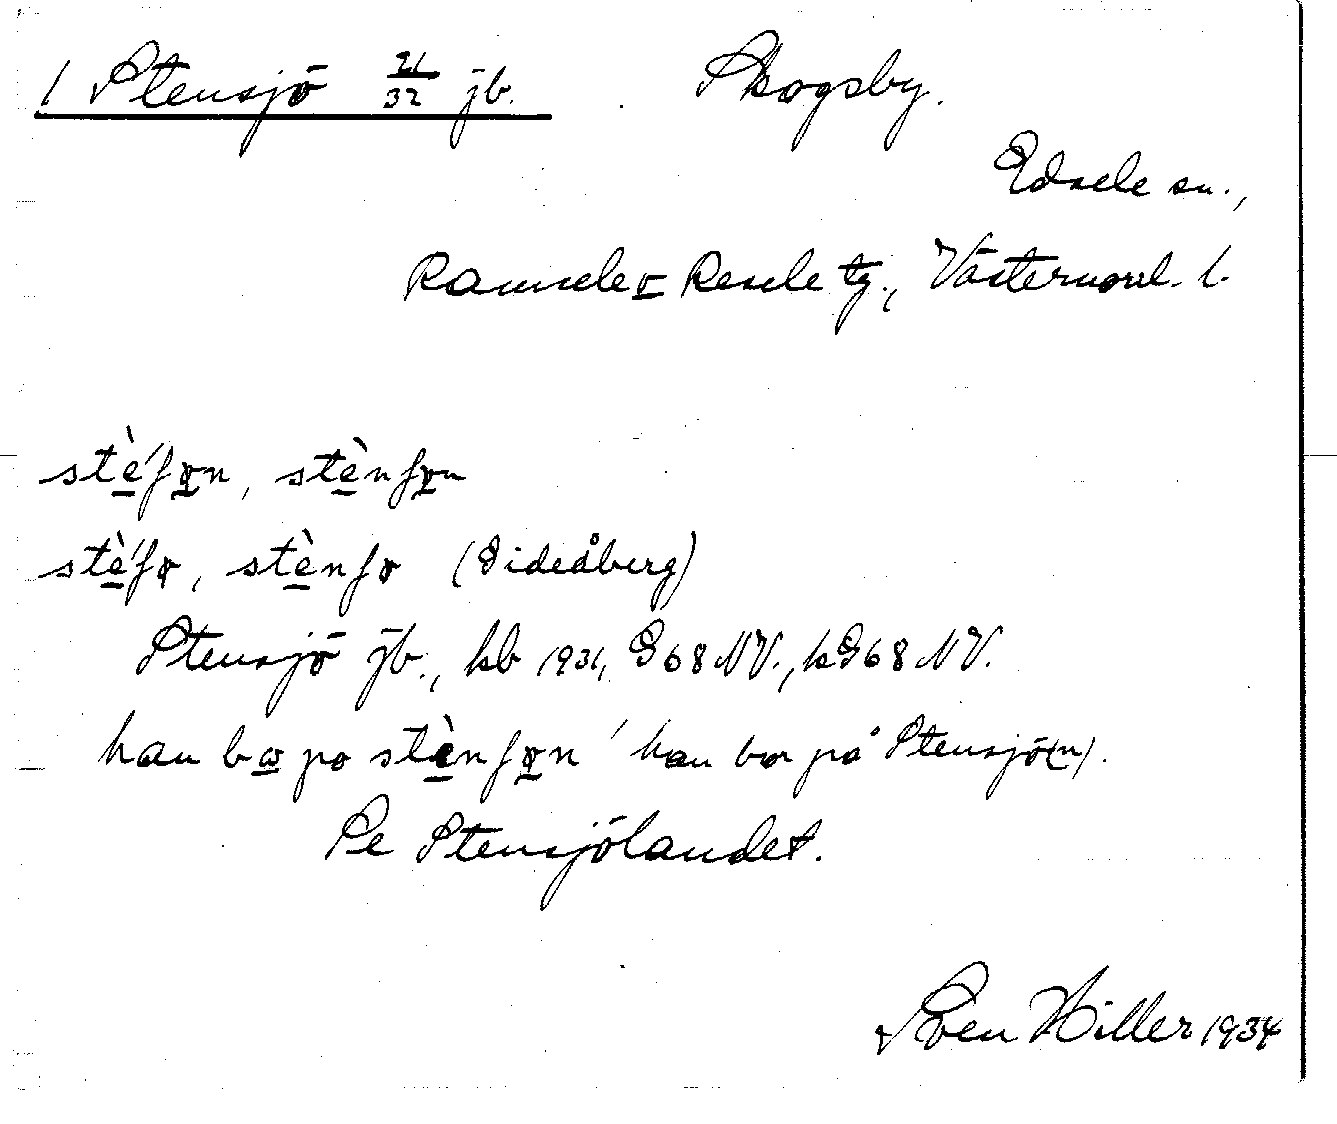 1 Stensjö 21/32 jb. Skogsby.
Edsele sn.,
Ramsele o Resele tg., Västernorrl. l.
stè́ʃɤn, stènʃɤn
stè́ʃɤ, stènʃɤ (Gideåberg)
Stensjö jb., kb 1931, G 68 NV., hG68 NV.
han bω po stènʃɤn ' han bor på Stensjö(n).
Se Stensjölandet.
Sven Hiller 1934